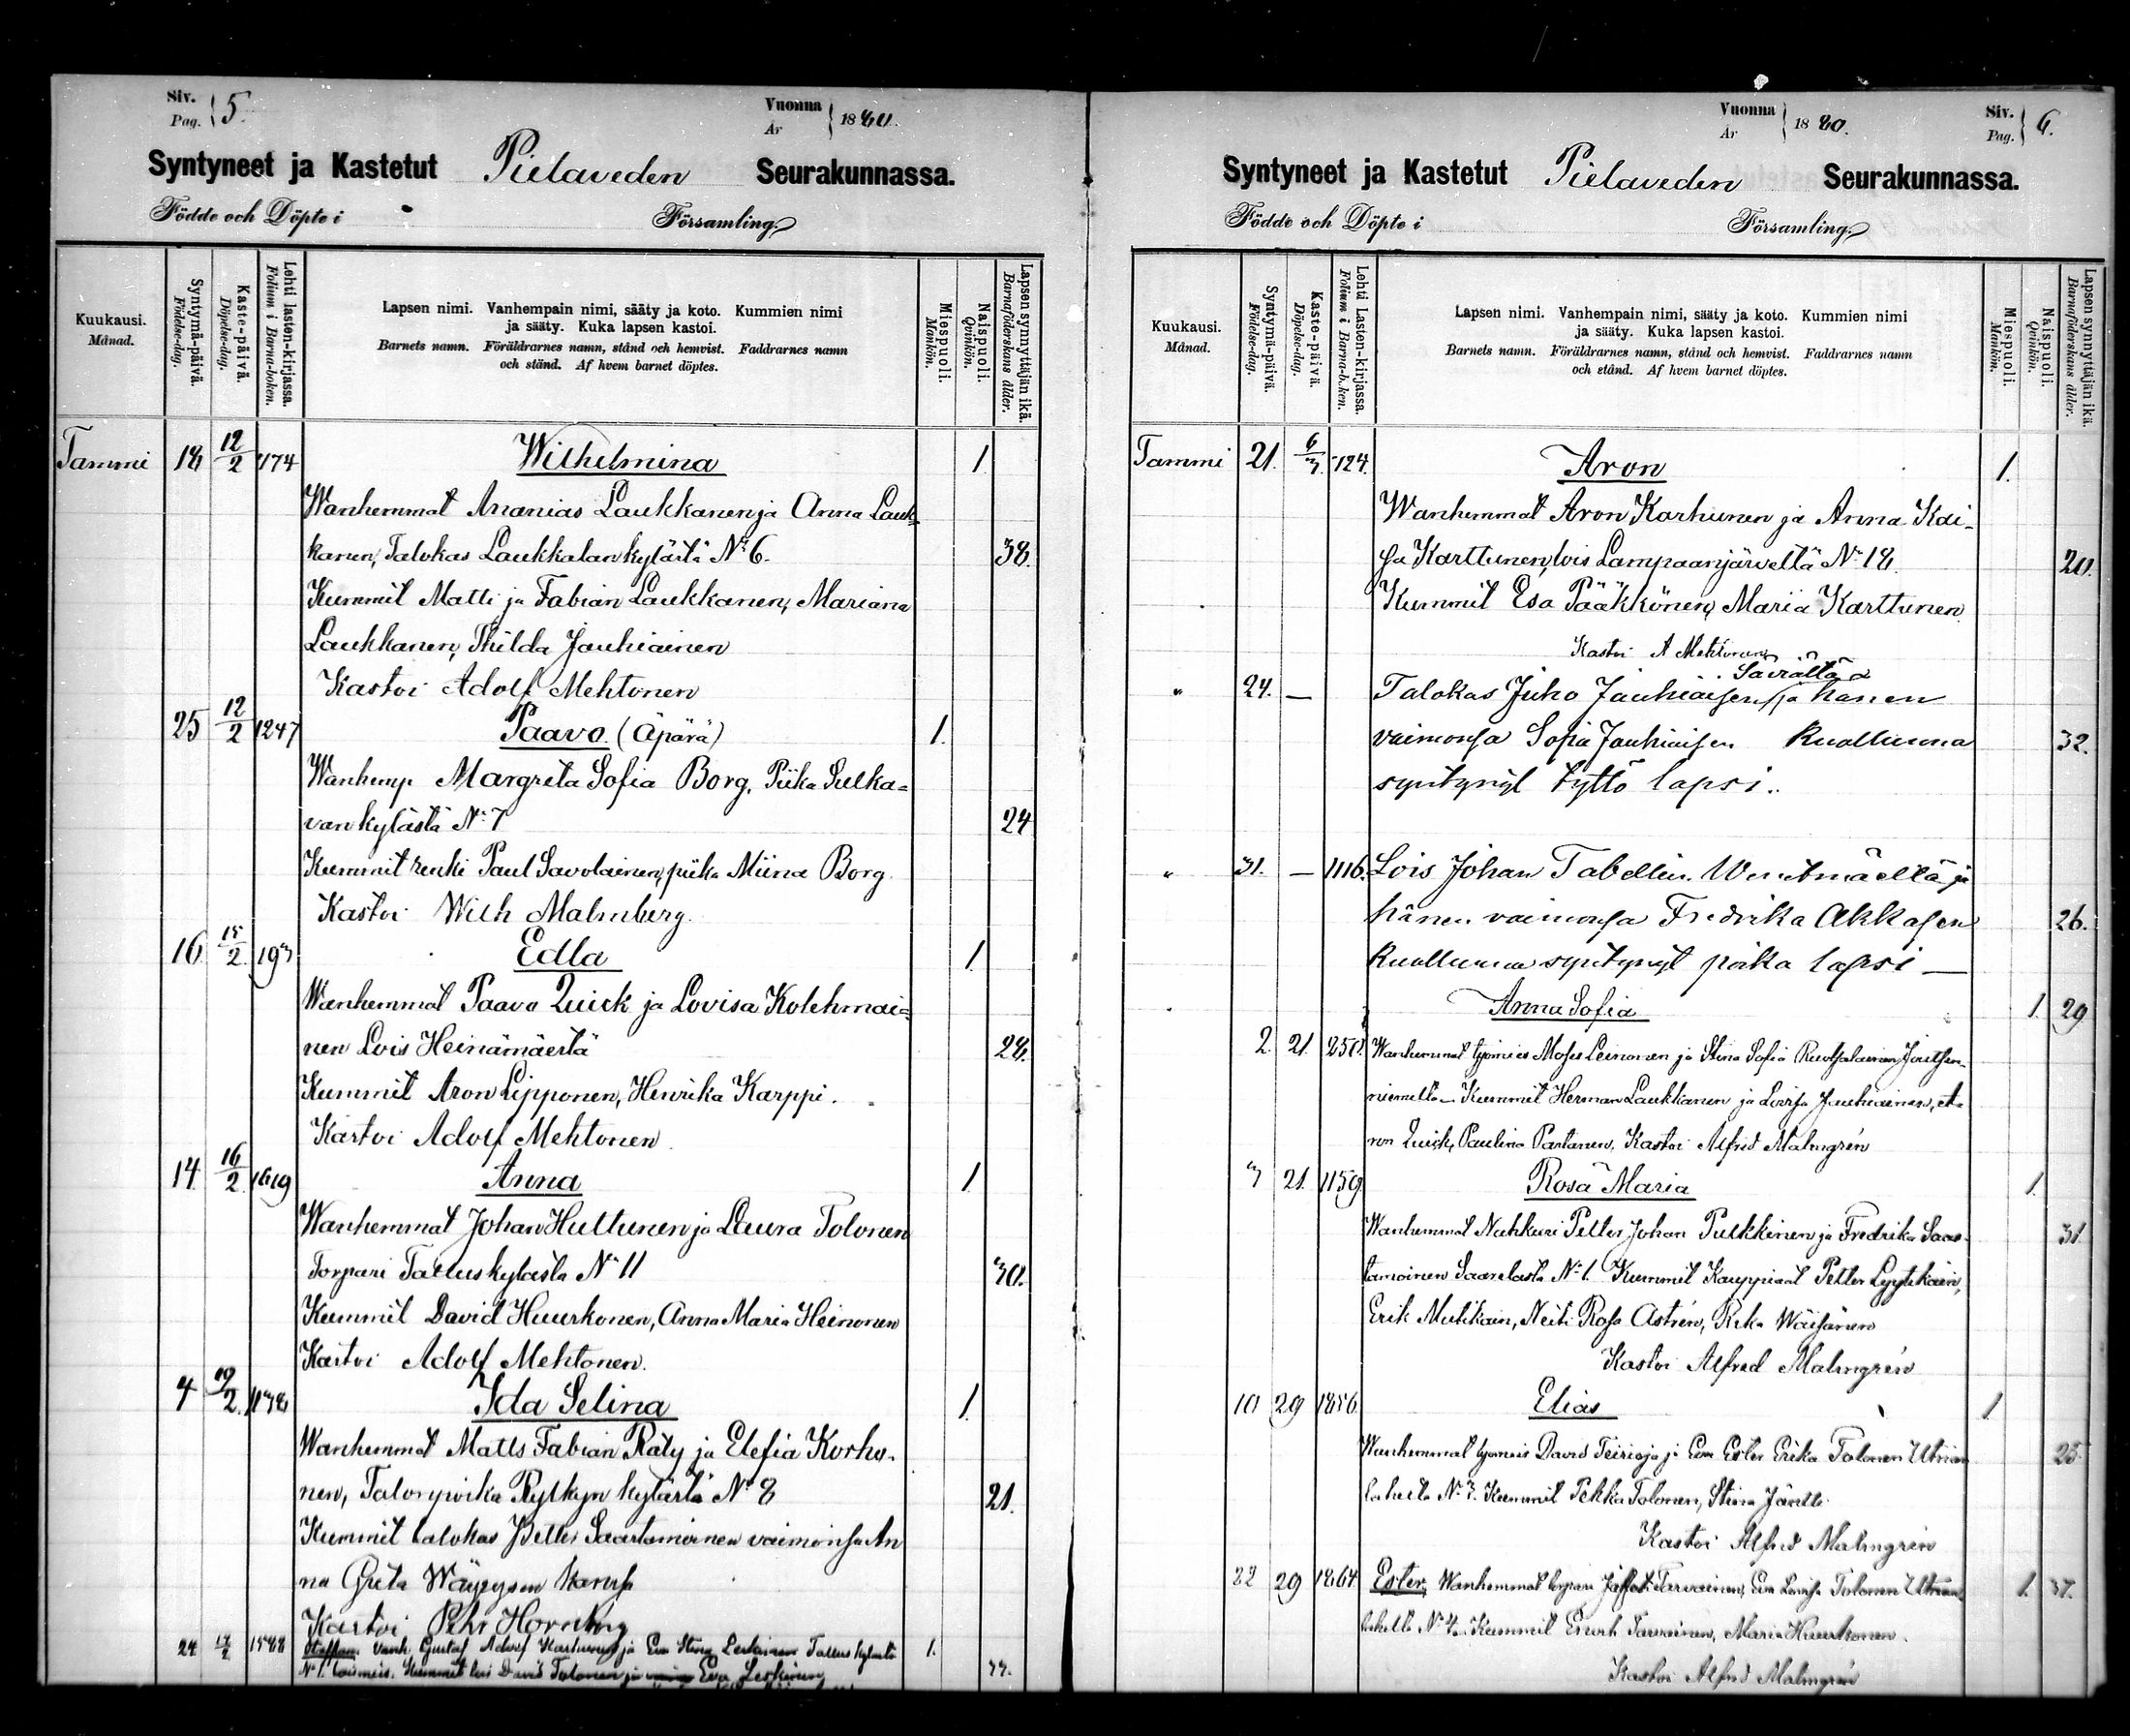 Siv. Pag. 5.
Vuonna År 1880.
Syntyneet ja Kastetut Pielaveden Seurakunnassa.
Födde och Döpte i Församling.
Kuukausi. Månad.
Syntymä-päivä. Födelse-dag.
Kaste-päivä. Döpelse-dag.
Lehti lasten-kirjassa. Folium i Barna-boken.
Lapsen nimi. Vanhempain nimi, sääty ja koto. Kummien nimi
ja sääty. Kuka lapsen kastoi.
Barnets namn. Föräldrarnes namn, stånd och hemvist. Faddrarnes namn
och stånd. Af hvem barnet döptes.
Miespuoli. Mankön.
Naispuoli. Qvinkön.
Lapsen synnyttäjän ikä. Barnaföderskans ålder.
Tammi 18 12/2 774 Wilhelmina 1.
Wanhemmat Ananias Laukkanen ja Anna Lauk-
kanen, Talokas Laukkalan kylästä No 6. 38.
Kummit Matti ja Fabian Laukkanen, Mariana
Laukkanen, Thilda Jauhiainen
Kastoi Adolf Mehtonen
25 12/2 1247 Paavo. (Äpärä) 1.
Wanhemp Margreta Sofia Borg, Piika Sulka=
van kylästä No 7 24
Kummit renki Paul Savolainen, piika Miina Borg.
Kastoi Wilh Malmberg.
16. 15/2 193 Edla 1.
Wanhemmat Paavo Quick ja Lovisa Kolehmai=
nen Lois Heinämäestä 28.
Kummit Aron Lipponen, Henrika Karppi.
Kastoi Adolf Mehtonen.
14. 16/2 1619 Anna 1.
Wanhemmat Johan Huttunen ja Laura Tolonen
Torpari Tallus kylästä No 11 30.
Kummit David Huurkonen, Anna Maria Heinonen
Kastoi Adolf Mehtonen.
4 19/2 1138 Ida Selina 1.
Wanhemmat Matts Fabian Räty ja Elefia Korho-
nen, Talonpoika Pylkyn kylästä No 8 21.
Kummit talokas Petter Saastamoinen vaimonsa An
na Greta Wäyrysen kanssa
Kastoi Pehr Hornborg
24 1588 Staffan. Vanh. Gustaf Adolf Karhunen ja Eva Stina Leskinen Tallus kylästä 1.
No 1. loismies. Kummit lois David Tolonen ja Eva Leskinen,
Siv. Pag. 6.
Vuonna År 1880.
Syntyneet ja Kastetut Pielaveden Seurakunnassa.
Födde och Döpte i Församling.
Kuukausi. Månad.
Syntymä-päivä. Födelse-dag.
Kaste-päivä. Döpelse-dag.
Lehti Lasten-kirjassa. Folium i Barna-b.ken.
Lapsen nimi. Vanhempain nimi, sääty ja koto. Kummien nimi
ja sääty. Kuka lapsen kastoi.
Barnets namn. Föräldrarnes namn, stånd och hemvist. Faddrarnes namn
och stånd. Af hvem barnet döptes.
Miespuoli. Mankön.
Naispuoli. Qvinkön.
Lapsen synnyttäjän ikä. Barnaföderskans ålder.
Tammi 21. 6/3. 724. Aron 1.
Wanhemmat Aron Karhunen ja Anna Kai-
sa Karttunen, lois Lampaanjärveltä No 18. 20.
Kummit Esa Pääkkönen, Maria Karttunen
Kastoi A Mehtonen
Säviältä
" 24. — Talokas Juho Jauhiaisen ja hänen
vaimonsa Sofia Jauhiaisen Kuolluna 32.
syntynyt tyttö lapsi.
" 31. — 1116. Lois Johan Tabellin Wentmäeltä ja
hänen vaimonsa Fredrika Akkasen 26.
Kuolluna syntynyt poika lapsi —
Anna Sofia 1. 29
2. 21. 250. Wanhemmat työmies Moses Leinonen ja Stina Sofia Ruotsalainen Joutsen-
niemeltä — Kummit Herman Laukkanen ja Lovisa Jauhiainen, A-
ron Quick, Paulina Partanen. Kastoi Alfred Malmgrén
3 21. 1159 Rosa Maria 1.
Wanhemmat Nahkuri Petter Johan Pulkkinen ja Fredrika Saas- 31
tamoinen Saarelasta No 1. Kummit Kauppiaat Petter Lyytikäin,
Erik Mutikain, Neiti Rosa Astrén, Rika Wäisänen
Kastoi Alfred Malmgrén
10 29 1856 Elias 1
Wanhemmat työmies David Teirioja ja Eva Ester Erika Tolonen Utrian 25
lahelta No 3. Kummit Pekka Tolonen, Stina Jäntti.
Kastoi Alfred Malmgrén
22 29 1864 Ester, Wanhemmat torpari Jafet Tarvainen, Eva Lovisa Tolonen Utrian 1. 37.
lahelta No 4. Kummit Enock Tarvainen, Maria Huurkonen.
Kastoi Alfred Malmgrén